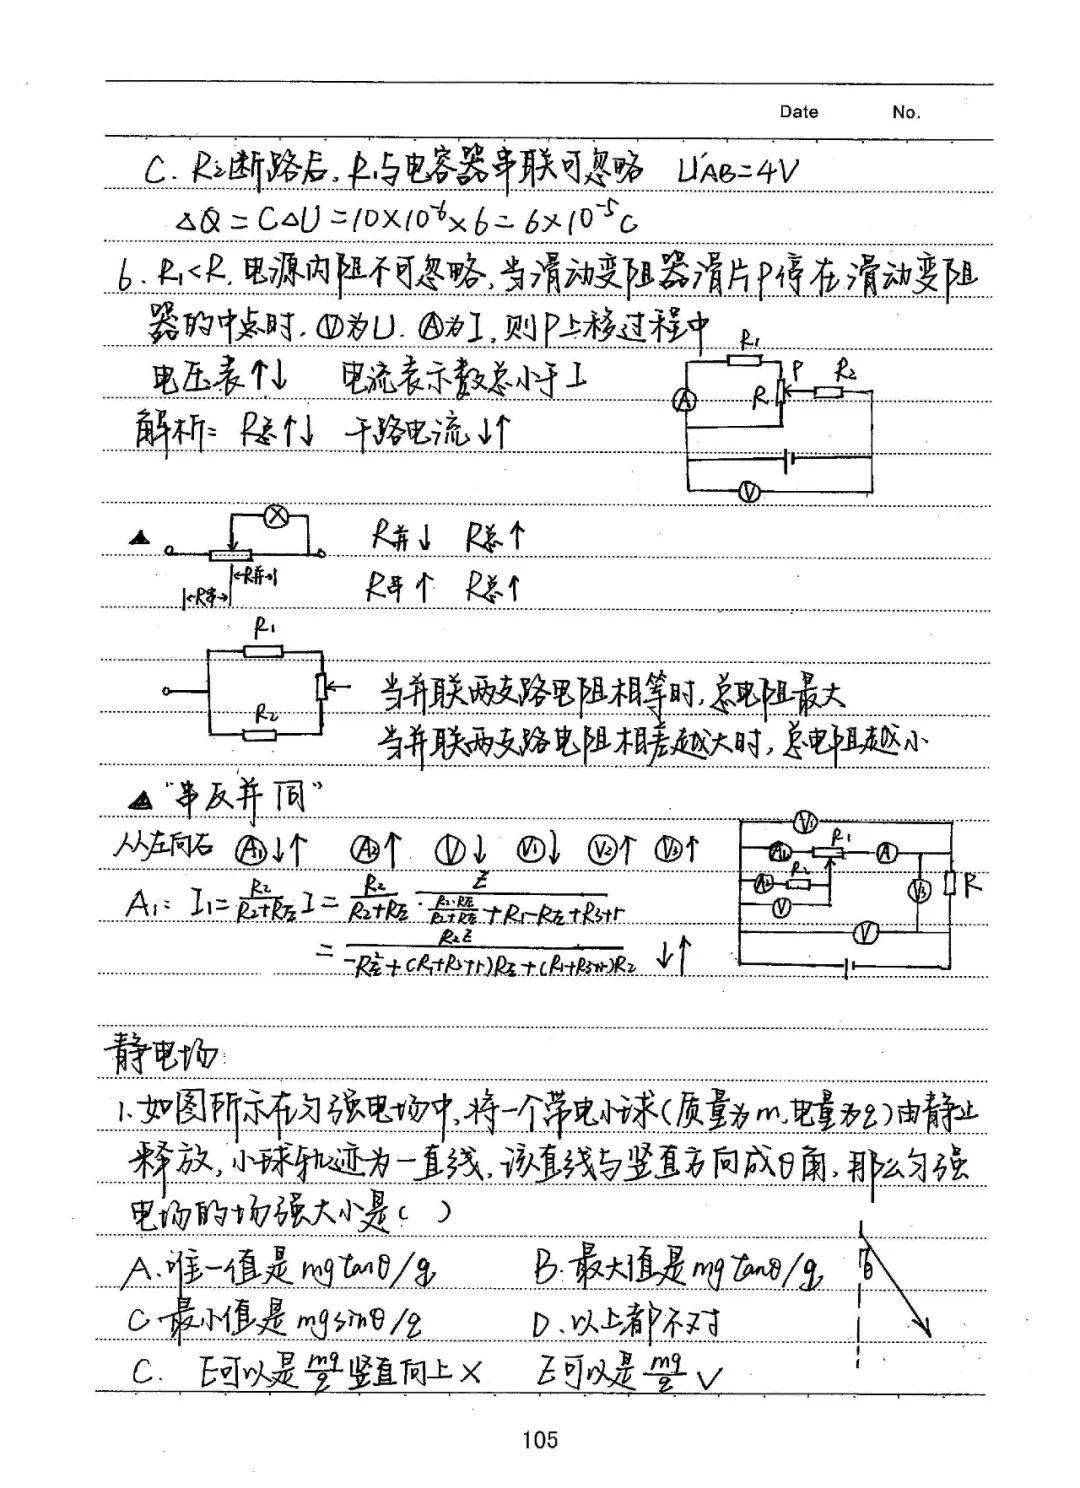 Date No.
C. R₂断路后,R₁与电容器串联可忽略 U'AB=4V
△Q=C△U=10×10⁻⁶×6=6×10⁻⁵C
6. R₁<R,电源内阻不可忽略,当滑动变阻器滑片P停在滑动变阻
器的中点时,Ⓥ为U.Ⓐ为I,则P上移过程中
电压表↑↓ 电流表示数总小于I
R₁
P
R
R₂
A
V
解析: R总↑↓ 干路电流↓↑
R并↓ R总↑
|←R并→|
|←R串→|
R串↑ R总↑
R₁
R₂
当并联两支路电阻相等时,总电阻最大
当并联两支路电阻相差越大时,总电阻越小
▲"串反并同"
从左向右 Ⓐ₁↓↑ Ⓐ₂↑ Ⓥ↓ Ⓥ₁↓ Ⓥ₂↑ Ⓥ₃↑
V₁
A₁
R₁
A
A₂
R₂
V₃
R
V
V
A₁: I₁=R₂/(R₂+R左) I=R₂/(R₂+R左)·E/(R₂·R左/(R₂+R左)+R₁-R左+R₃+r)
=R₂E/(-R左²+(R₁+R₃+r)R左+(R₁+R₃+r)R₂) ↓↑
静电场:
1.如图所示在匀强电场中,将一个带电小球(质量为m,电量为q)由静止
释放,小球轨迹为一直线,该直线与竖直方向成θ角,那么匀强
电场的场强大小是( )
A.唯一值是mgtanθ/q B.最大值是mgtanθ/q
θ
C.最小值是mgsinθ/q D.以上都不对
C. E可以是mg/q竖直向上× E可以是mg/q√
105